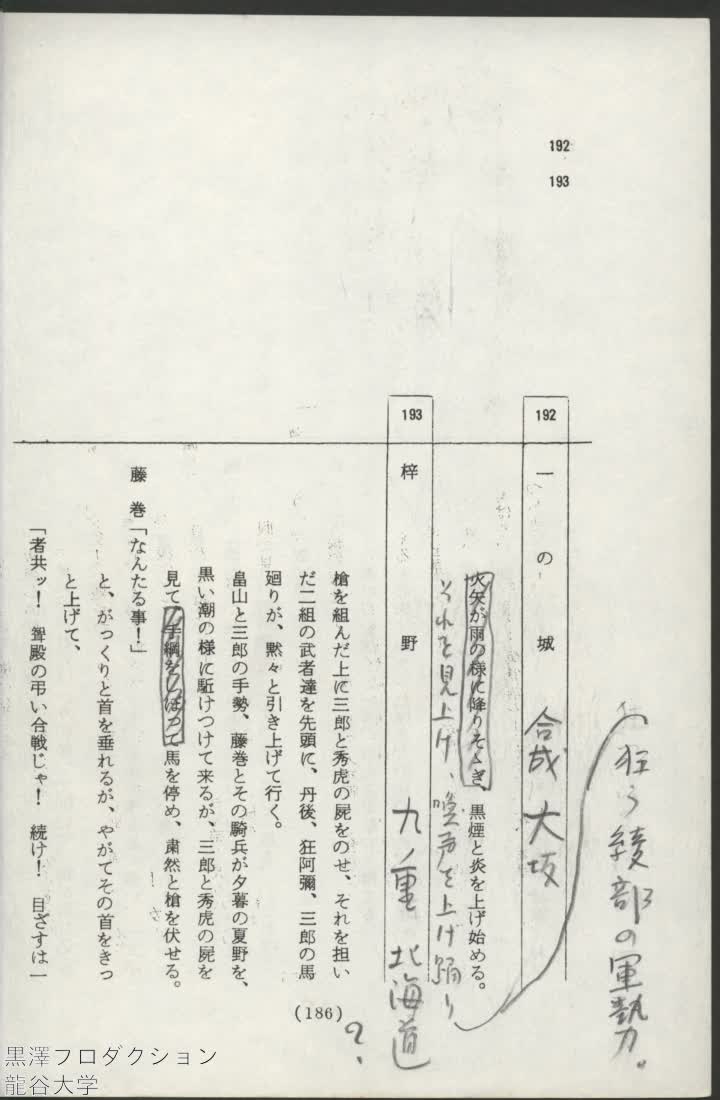 192
193
192
一の城 合成 大坂
狂う綾部の軍勢力。
火矢が雨の様に降りそゝぎ、黒煙と炎を上げ始める。
それを見上げ、喚声を上げ踊り
193
梓野 九ノ重 北海道?
槍を組んだ上に三郎と秀虎の屍をのせ、それを担い
だ二組の武者達を先頭に、丹後、狂阿彌、三郎の馬
廻りが、黙々と引き上げて行く。
畠山と三郎の手勢、藤巻とその騎兵が夕暮の夏野を、
黒い潮の様に駈けつけて来るが、三郎と秀虎の屍を
見て、手綱をしぼって馬を停め、粛然と槍を伏せる。
藤巻「なんたる事!」
と、がっくりと首を垂れるが、やがてその首をきっ
と上げて、
「者共ッ! 聟殿の弔い合戦じゃ! 続け! 目ざすは一
(186)
黒澤プロダクション
龍谷大学